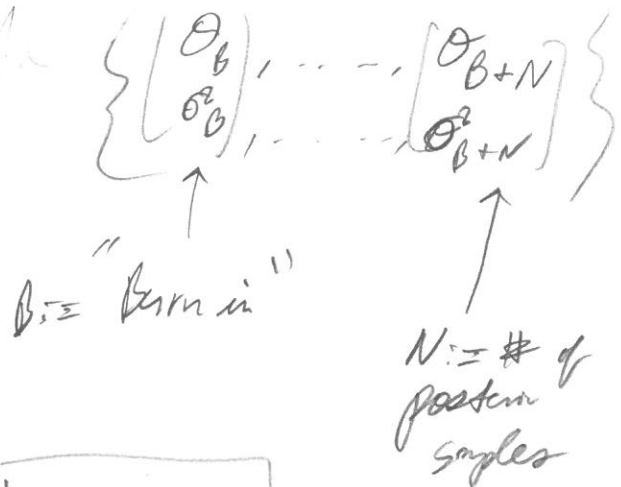 { [ θ_B , - - - - , [ θ_{B+N} ] }
σ²_B ] , - - - - , σ²_{B+N}
B := "Burn in"
N := # of
posterior
samples